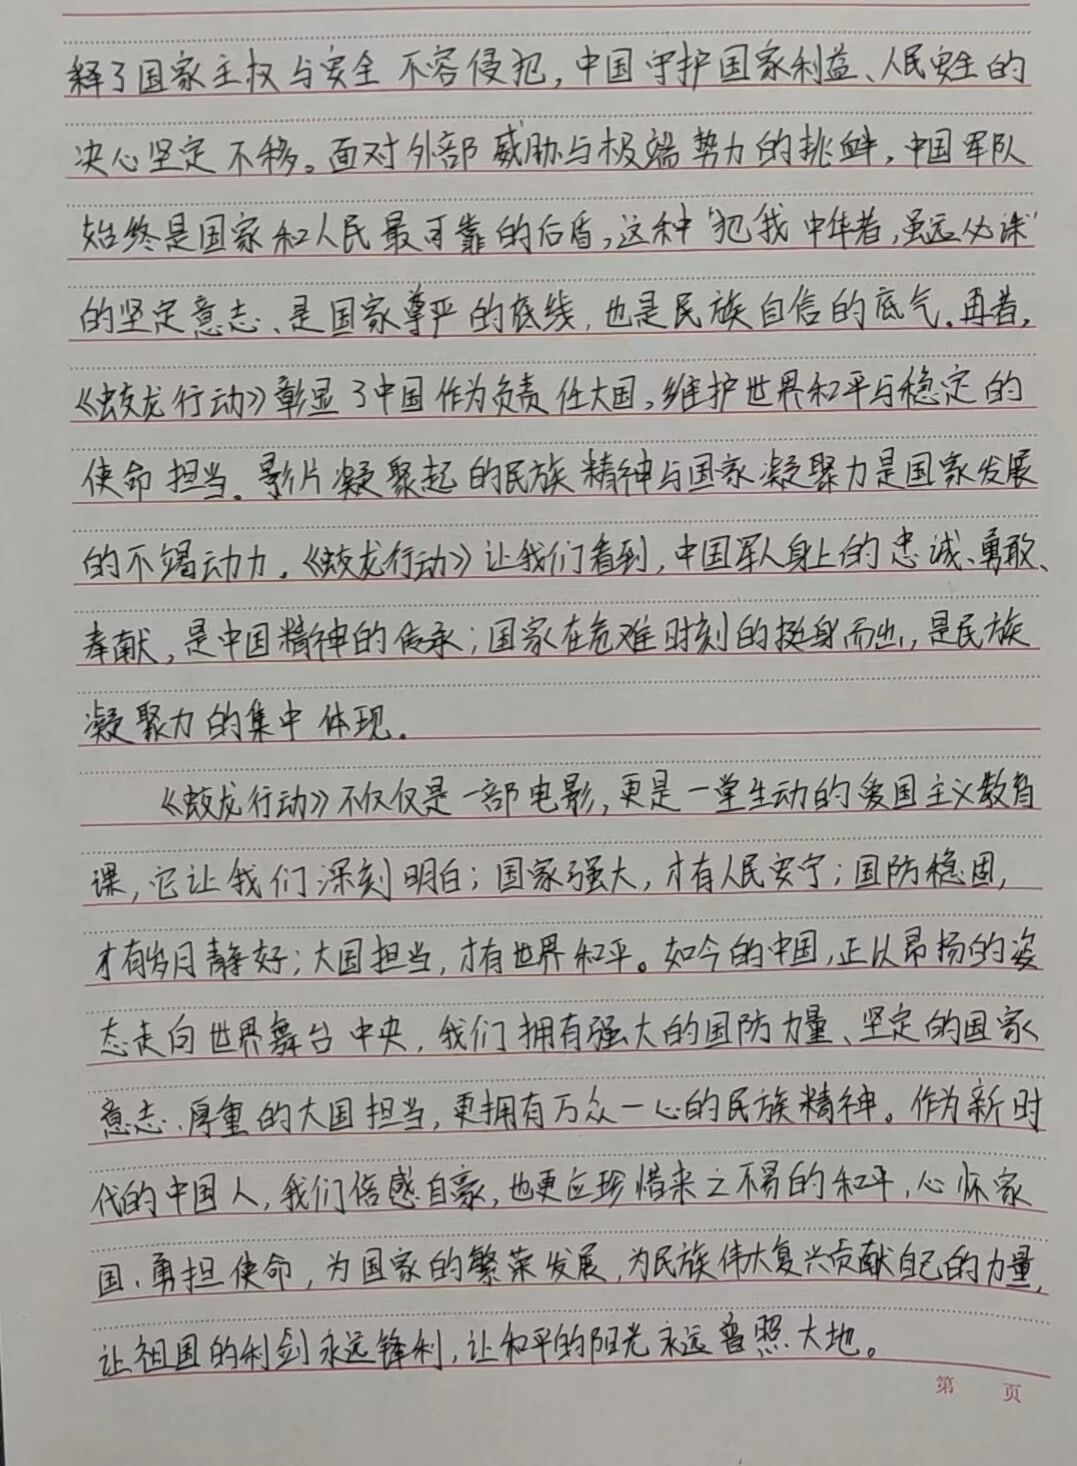 释了国家主权与安全不容侵犯，中国守护国家利益、人民安全的
决心坚定不移。面对外部威胁与极端势力的挑衅，中国军队
始终是国家和人民最可靠的后盾，这种“犯我中华者，虽远必诛”
的坚定意志、是国家尊严的底线，也是民族自信的底气。再者，
《蛟龙行动》彰显了中国作为负责任大国，维护世界和平与稳定的
使命担当。影片凝聚起的民族精神与国家凝聚力是国家发展
的不竭动力。《蛟龙行动》让我们看到，中国军人身上的忠诚、勇敢、
奉献，是中国精神的传承；国家在危难时刻的挺身而出，是民族
凝聚力的集中体现。
《蛟龙行动》不仅仅是一部电影，更是一堂生动的爱国主义教育
课，它让我们深刻明白；国家强大，才有人民安宁；国防稳固，
才有岁月静好；大国担当，才有世界和平。如今的中国，正以昂扬的姿
态走向世界舞台中央，我们拥有强大的国防力量、坚定的国家
意志、厚重的大国担当，更拥有万众一心的民族精神。作为新时
代的中国人，我们倍感自豪，也更应珍惜来之不易的和平，心怀家
国、勇担使命，为国家的繁荣发展，为民族伟大复兴贡献自己的力量，
让祖国的利剑永远锋利，让和平的阳光永远普照大地。
第 页